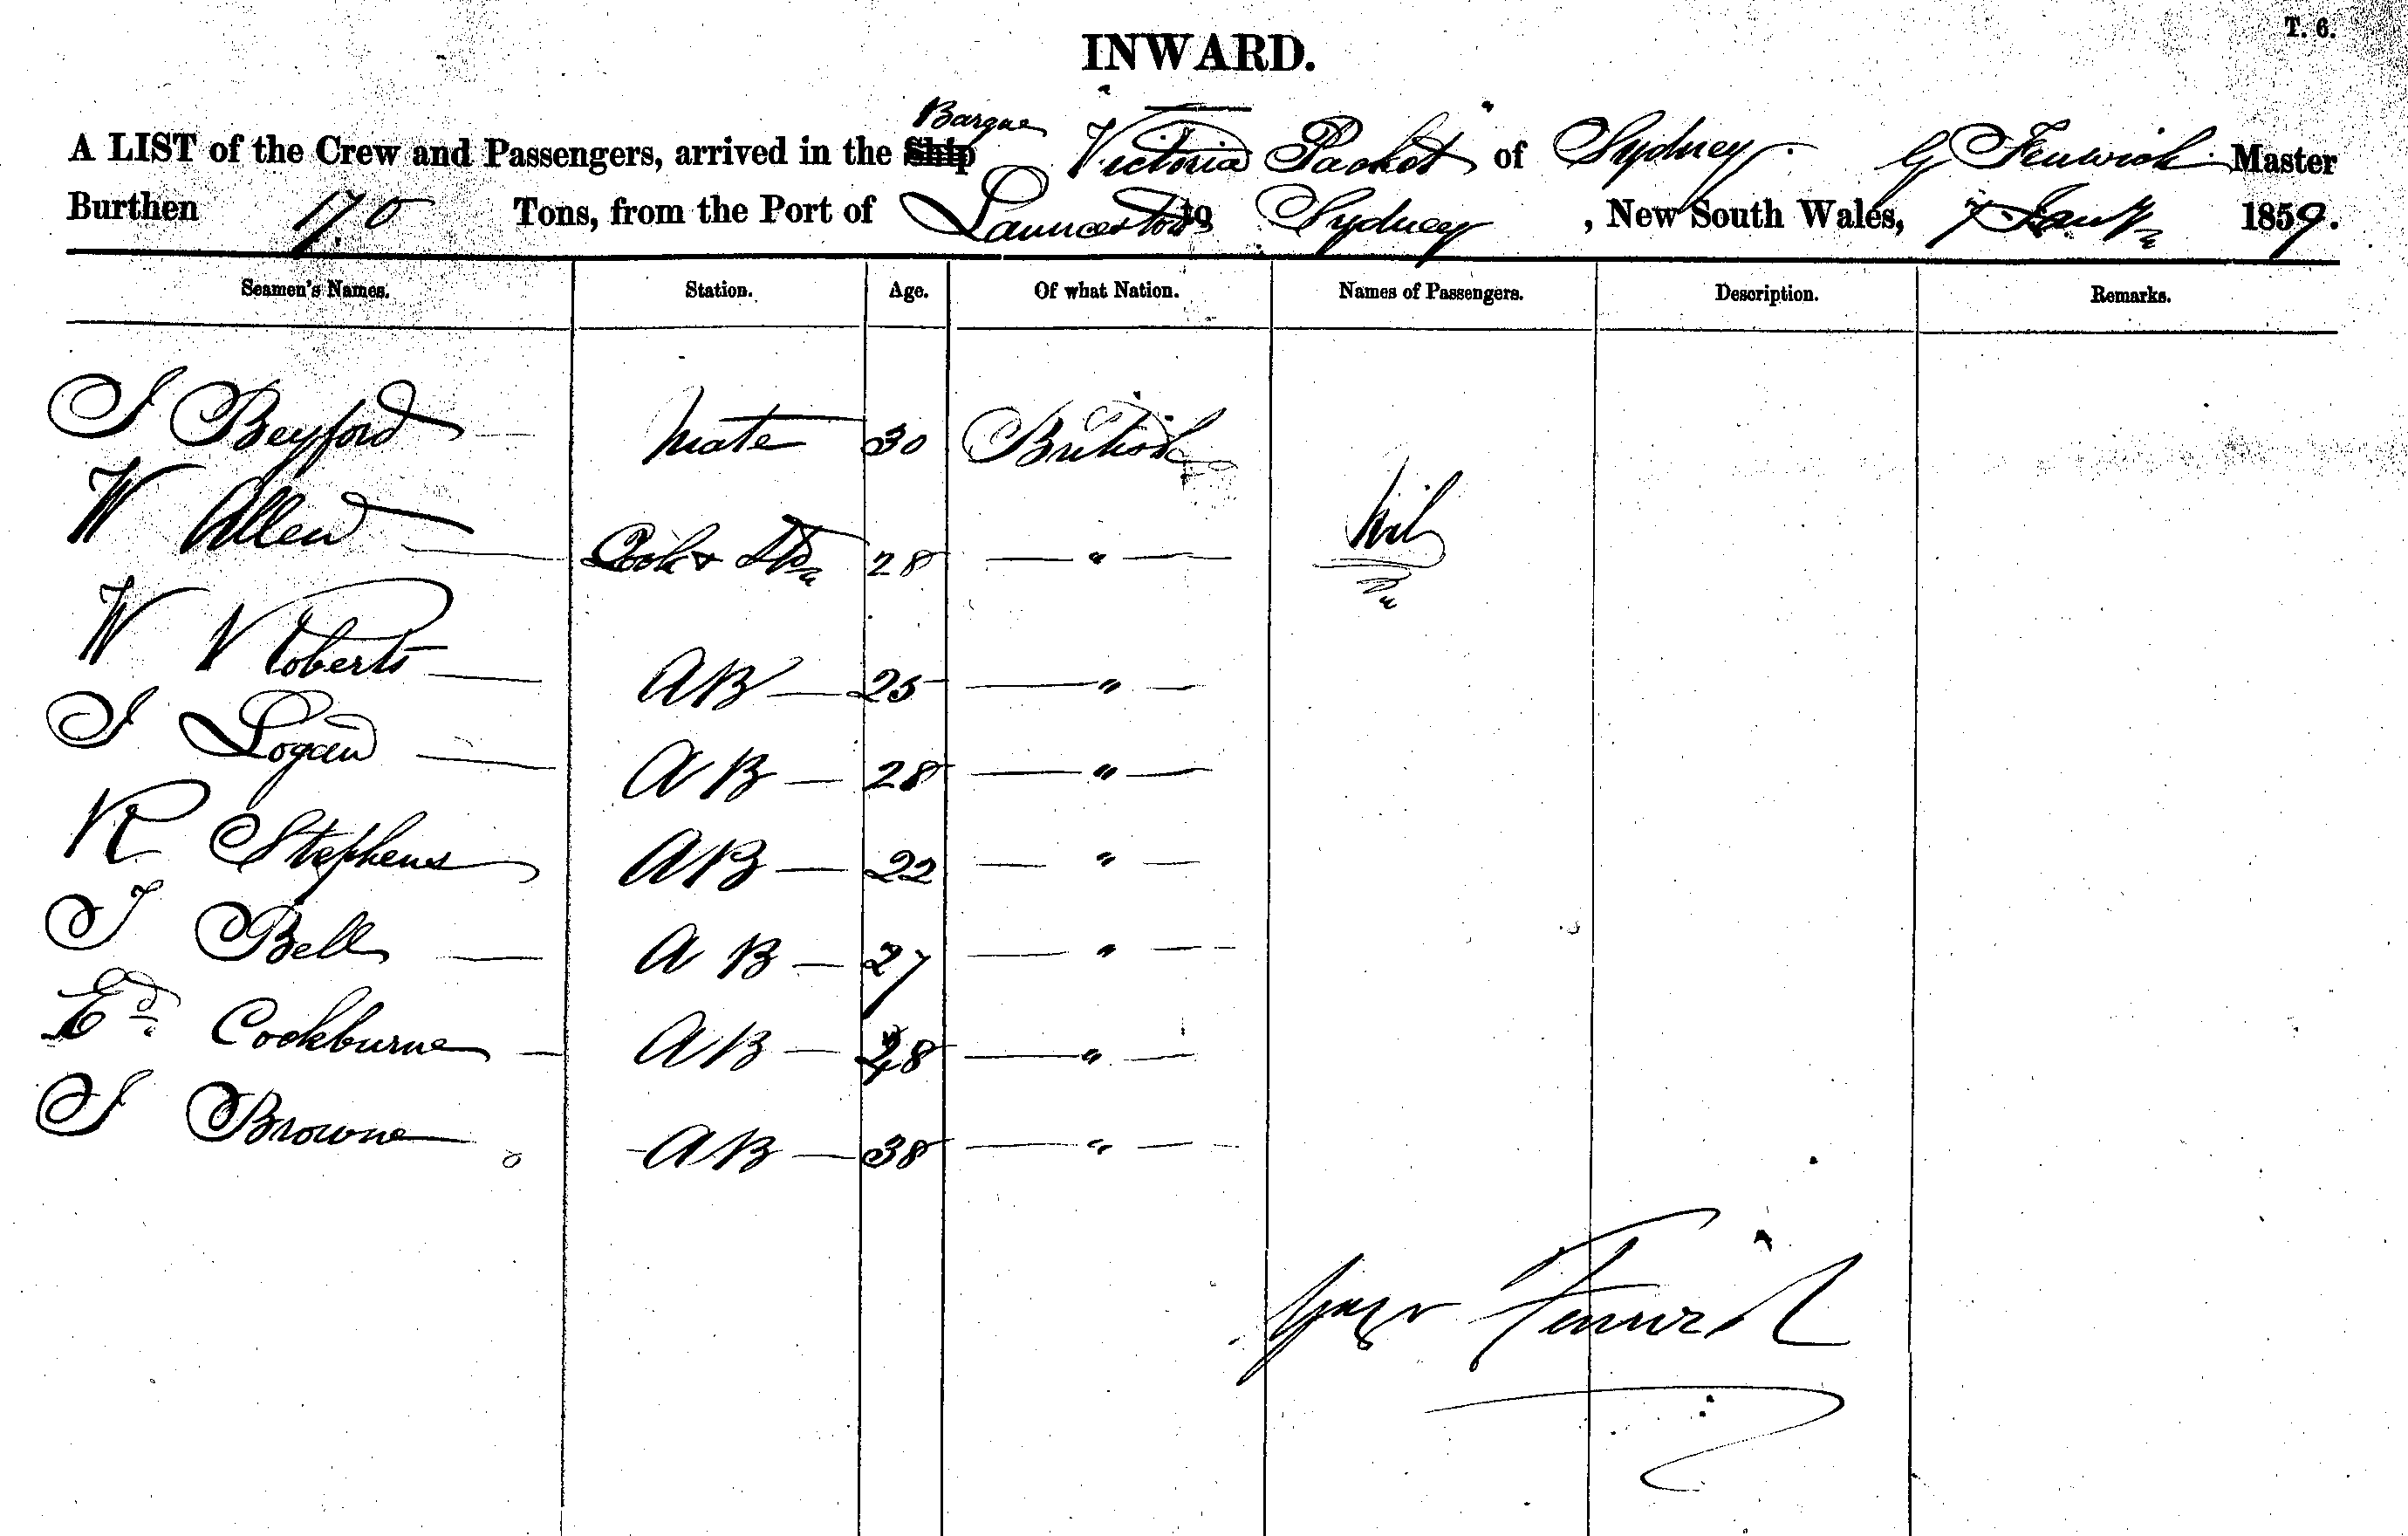 T. 6.
INWARD.
Barque
A LIST of the Crew and Passengers, arrived in the Ship Victoria Packet of Sydney G Fenwick Master
Burthen 170 Tons, from the Port of Launceston to Sydney, New South Wales, 7 Jany 1859.
Seamen's Names. Station. Age. Of what Nation. Names of Passengers. Description. Remarks.
J Beyford Mate 30 British
W Allen Cook & Std 28 — " — Nil
W Roberts AB — 25 — " —
J Logan AB — 28 — " —
R Stephens AB — 22 — " —
T Bell AB — 27 — " —
Ed Cockburne AB — 28 — " —
J Browne AB — 38 — " —
Fenwick